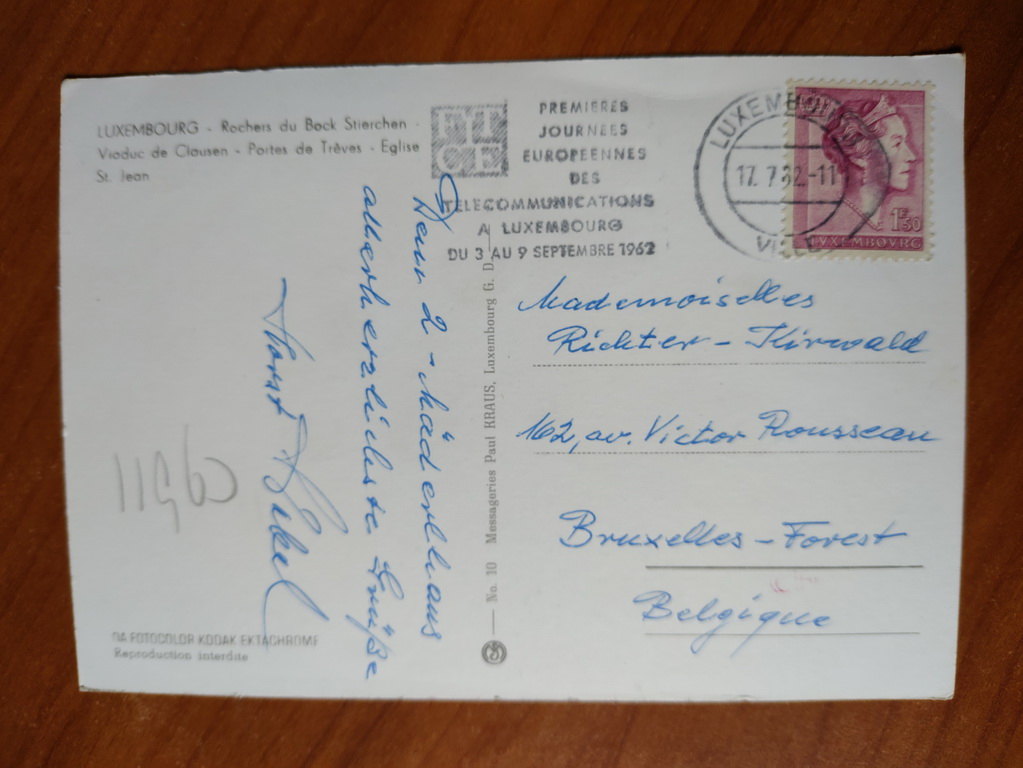 LUXEMBOURG - Rochers du Bock Stierchen -
Viaduc de Clausen - Portes de Trèves - Eglise
St. Jean
PREMIERES
JOURNEES
EUROPEENNES
DES
TELECOMMUNICATIONS
A LUXEMBOURG
DU 3 AU 9 SEPTEMBRE 1962
LUXEMBOURG
17.7.62.-11
VILLE
1F50
LUXEMBOVRG
Dem 2-Mäderlhaus
allerherzlichste Grüße
Horst
No. 10 Messageries Paul KRAUS, Luxembourg G. D.
Mademoiselles
Richter - Kirwald
162, av. Victor Rousseau
Bruxelles - Forest
Belgique
FOTOCOLOR KODAK EKTACHROME
Reproduction interdite